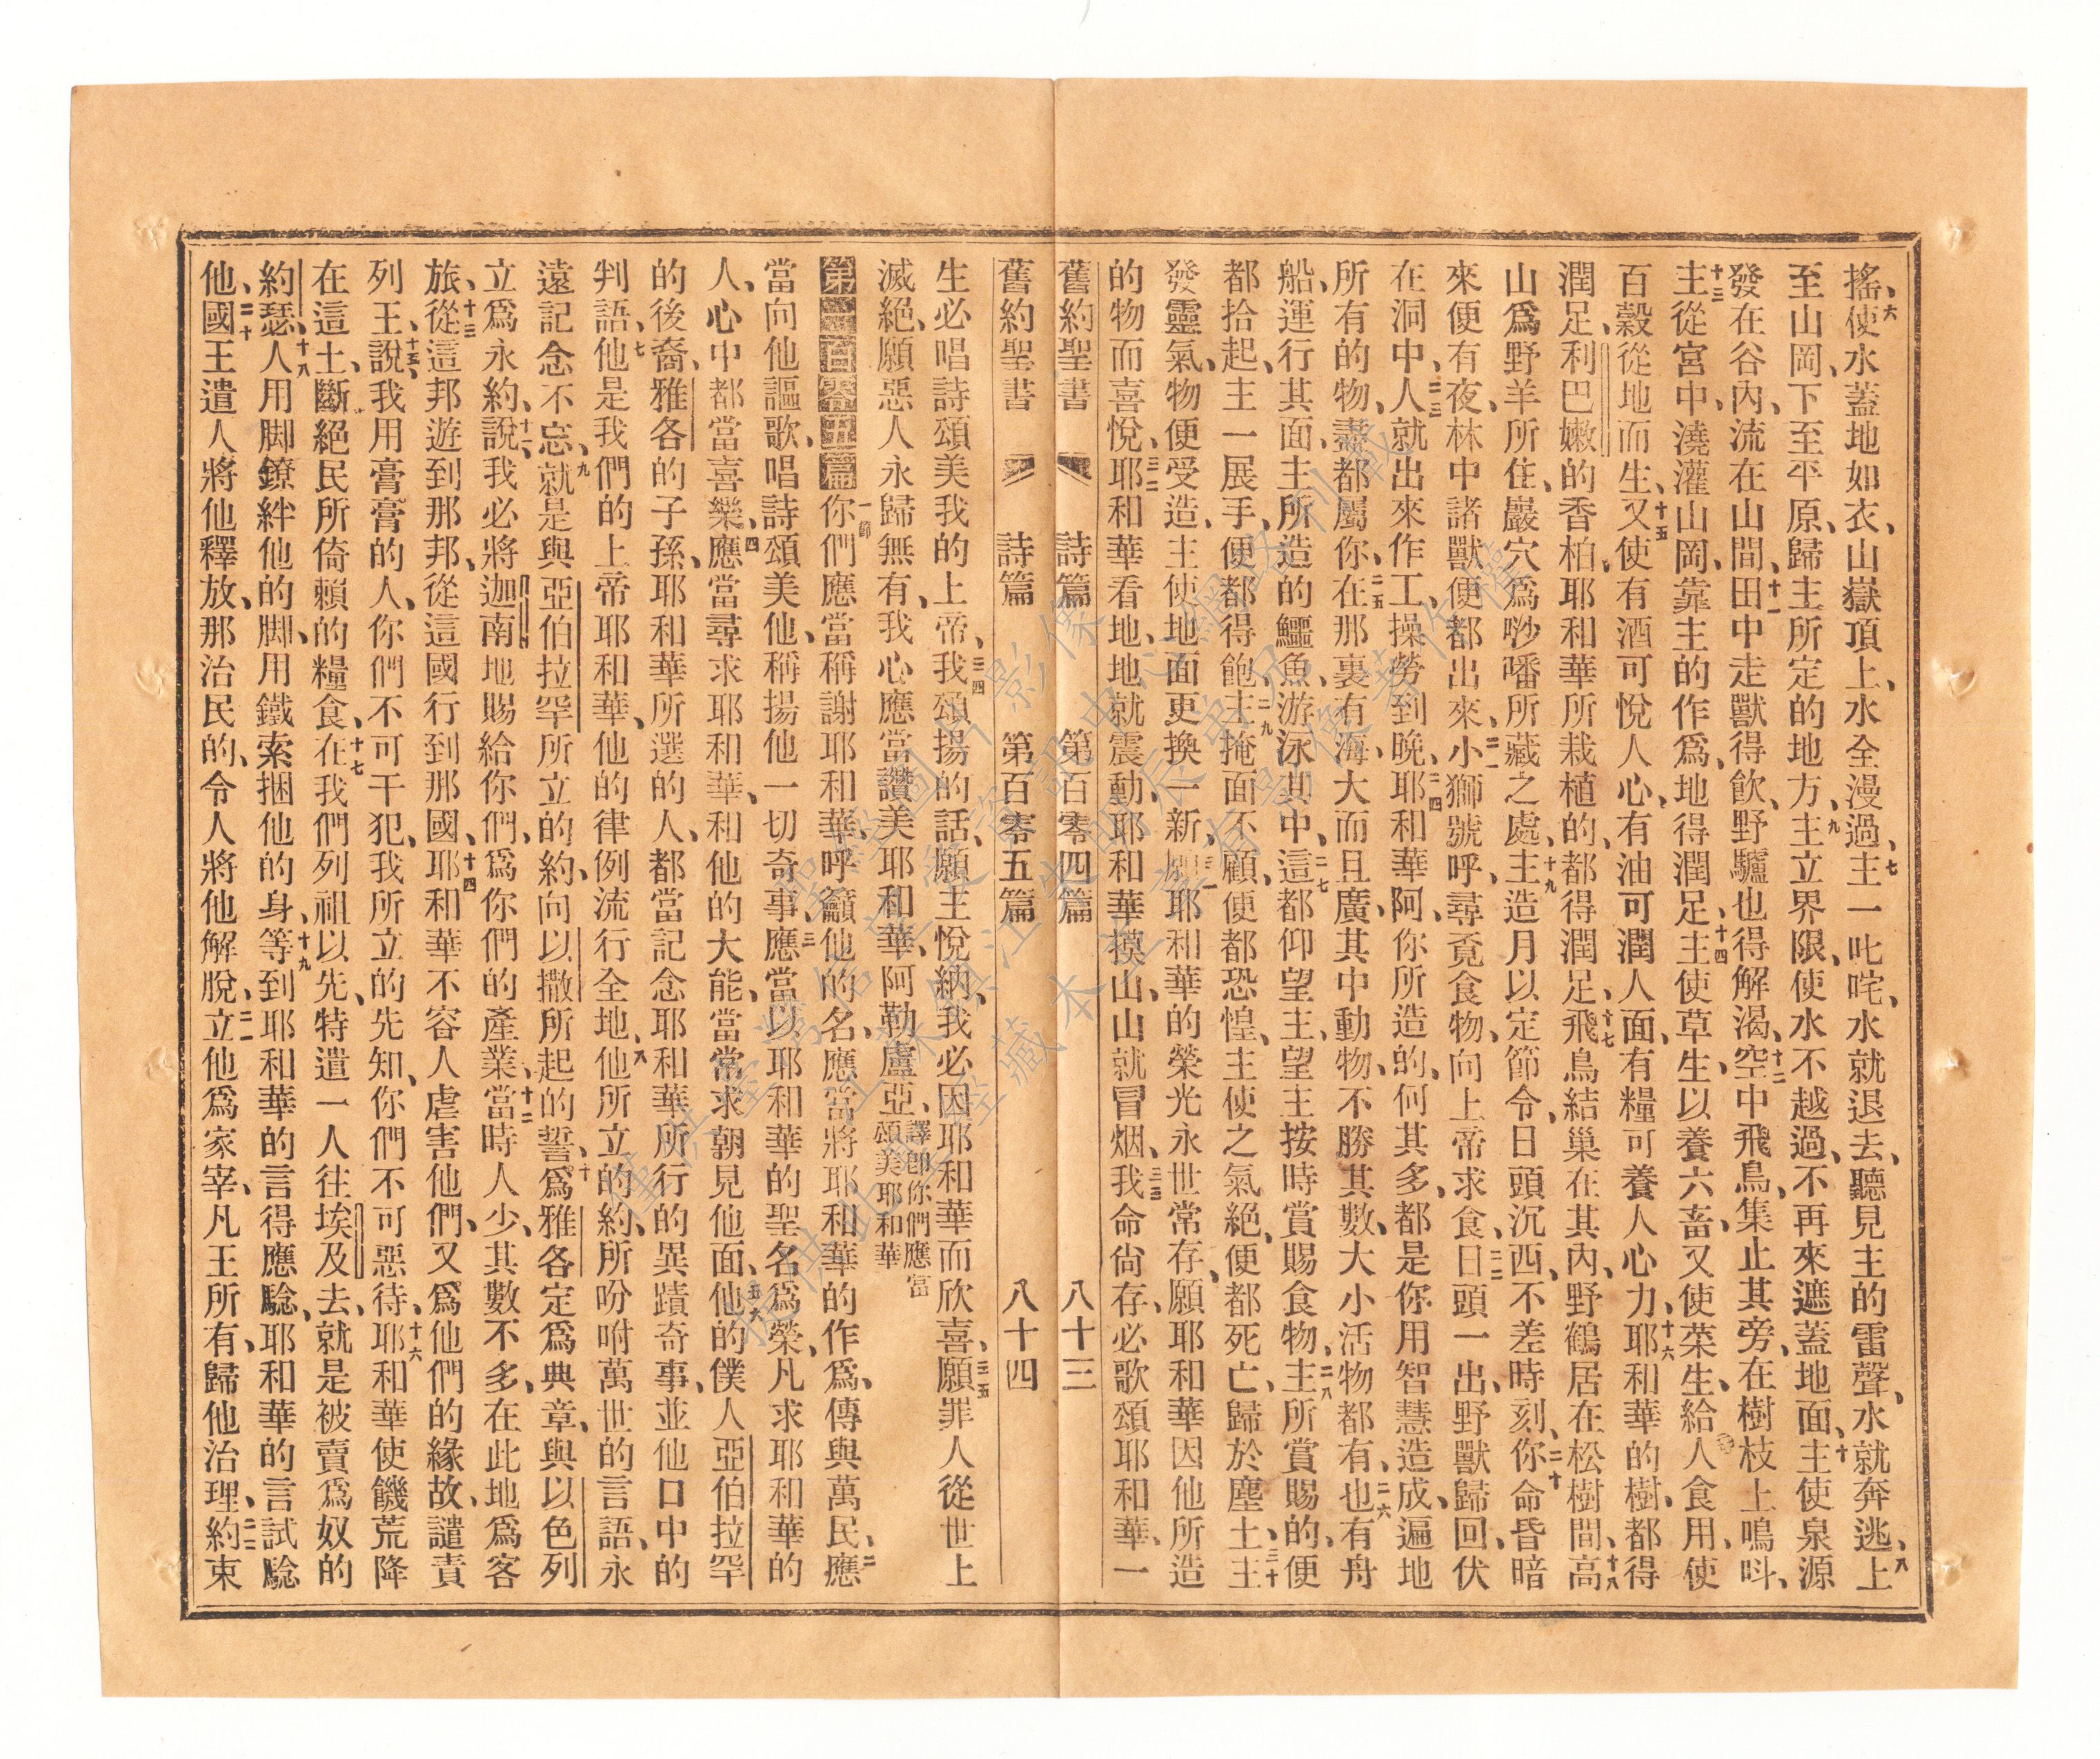 搖、六使水蓋地如衣、山嶽頂上、水全漫過、七主一叱咤、水就退去、聽見主的雷聲、水就奔逃、八上
至山岡、下至平原、歸主所定的地方、九主立界限、使水不越過、不再來遮蓋地面、十主使泉源
發在谷內、流在山間、十一田中走獸得飲、野驢也得解渴、十二空中飛鳥、集止其旁、在樹枝上鳴呌、
十三主從宮中、澆灌山岡、靠主的作爲、地得潤足、十四主使草生、以養六畜、又使菜生、給人食用、使
百穀從地而生、十五又使有酒可悅人心、有油可潤人面、有糧可養人心力、十六耶和華的樹、都得
潤足、利巴嫩的香柏、耶和華所栽植的、都得潤足、十七飛鳥結巢在其內、野鶴居在松樹間、十八高
山爲野羊所住、巖穴爲𠵇噃所藏之處、十九主造月以定節令、日頭沉西、不差時刻、二十你命昏暗
來便有夜、林中諸獸便都出來、二一小獅號呼、尋覓食物、向上帝求食、二二日頭一出、野獸歸回、伏
在洞中、二三人就出來作工、操勞到晚、二四耶和華阿、你所造的、何其多、都是你用智慧造成、遍地
所有的物、盡都屬你、二五在那裏有海、大而且廣、其中動物、不勝其數、大小活物都有、二六也有舟
船、運行其面、主所造的鱷魚、游泳其中、二七這都仰望主、望主按時賞賜食物、二八主所賞賜的、便
都拾起、主一展手、便都得飽、二九主掩面不顧、便都恐惶、主使之氣絕、便都死亡、歸於塵土、三十主
發靈氣、物便受造、主使地面更換一新、三一願耶和華的榮光永世常存、願耶和華因他所造
的物而喜悅、三二耶和華看地、地就震動、耶和華摸山、山就冒烟、三三我命尙存、必歌頌耶和華、一
舊約聖書 詩篇 第百零四篇 八十三
舊約聖書 詩篇 第百零五篇 八十四
生必唱詩頌美我的上帝、三四我頌揚的話、願主悅納、我必因耶和華而欣喜、三五願罪人從世上
滅絕、願惡人永歸無有、我心應當讚美耶和華、阿勒盧亞、譯卽你們應當頌美耶和華
第一百零五篇 一節你們應當稱謝耶和華、呼籲他的名、應當將耶和華的作爲、傳與萬民、二應
當向他謳歌、唱詩頌美他、稱揚他一切奇事、三應當以耶和華的聖名爲榮、凡求耶和華的
人、心中都當喜樂、四應當尋求耶和華、和他的大能、當常求朝見他面、五六他的僕人亞伯拉罕
的後裔、雅各的子孫、耶和華所選的人、都當記念耶和華所行的異蹟奇事、並他口中的
判語、七他是我們的上帝耶和華、他的律例流行全地、八他所立的約、所吩咐萬世的言語、永
遠記念不忘、九就是與亞伯拉罕所立的約、向以撒所起的誓、十爲雅各定爲典章、與以色列
立爲永約、十一說、我必將迦南地賜給你們、爲你們的產業、十二當時人少、其數不多、在此地爲客
旅、十三從這邦遊到那邦、從這國行到那國、十四耶和華不容人虐害他們、又爲他們的緣故、譴責
列王、十五說、我用膏膏的人、你們不可干犯、我所立的先知、你們不可惡待、十六耶和華使饑荒降
在這土、斷絕民所倚賴的糧食、十七在我們列祖以先、特遣一人往埃及去、就是被賣爲奴的
約瑟、十八人用脚鐐絆他的脚、用鐵索捆他的身、十九等到耶和華的言得應驗、耶和華的言試驗
他、二十國王遣人將他釋放、那治民的、令人將他解脫、二一立他爲家宰、凡王所有、歸他治理、二二約束